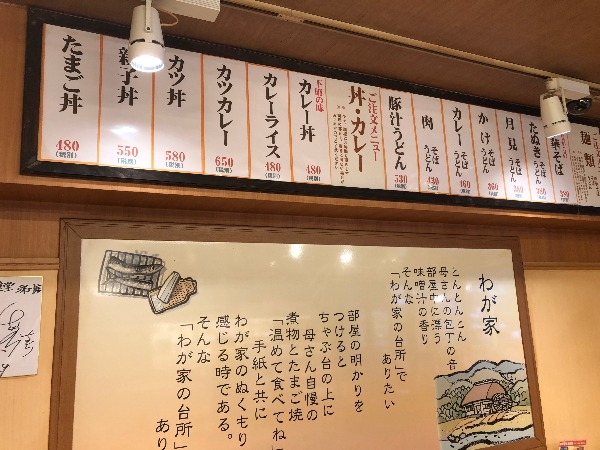 麺類
華そば
280
たぬき
そば
うどん
380
月見
そば
うどん
380
かけ
そば
うどん
360
カレー
そば
うどん
460
肉
そば
うどん
430
豚汁うどん
530
ご注文メニュー
丼・カレー
下町の味
カレー丼
480
(税別)
カレーライス
480
(税別)
カツカレー
650
(税別)
カツ丼
580
(税別)
親子丼
550
(税別)
たまご丼
480
(税別)
わが家
とんとんとん
母さんの包丁の音
部屋中に漂う
味噌汁の香り
そんな
「わが家の台所」で
ありたい
部屋の明かりを
つけると
ちゃぶ台の上に
母さん自慢の
煮物とたまご焼
「温めて食べてね」
手紙と共に
わが家のぬくもり
感じる時である。
そんな
「わが家の台所」
あり